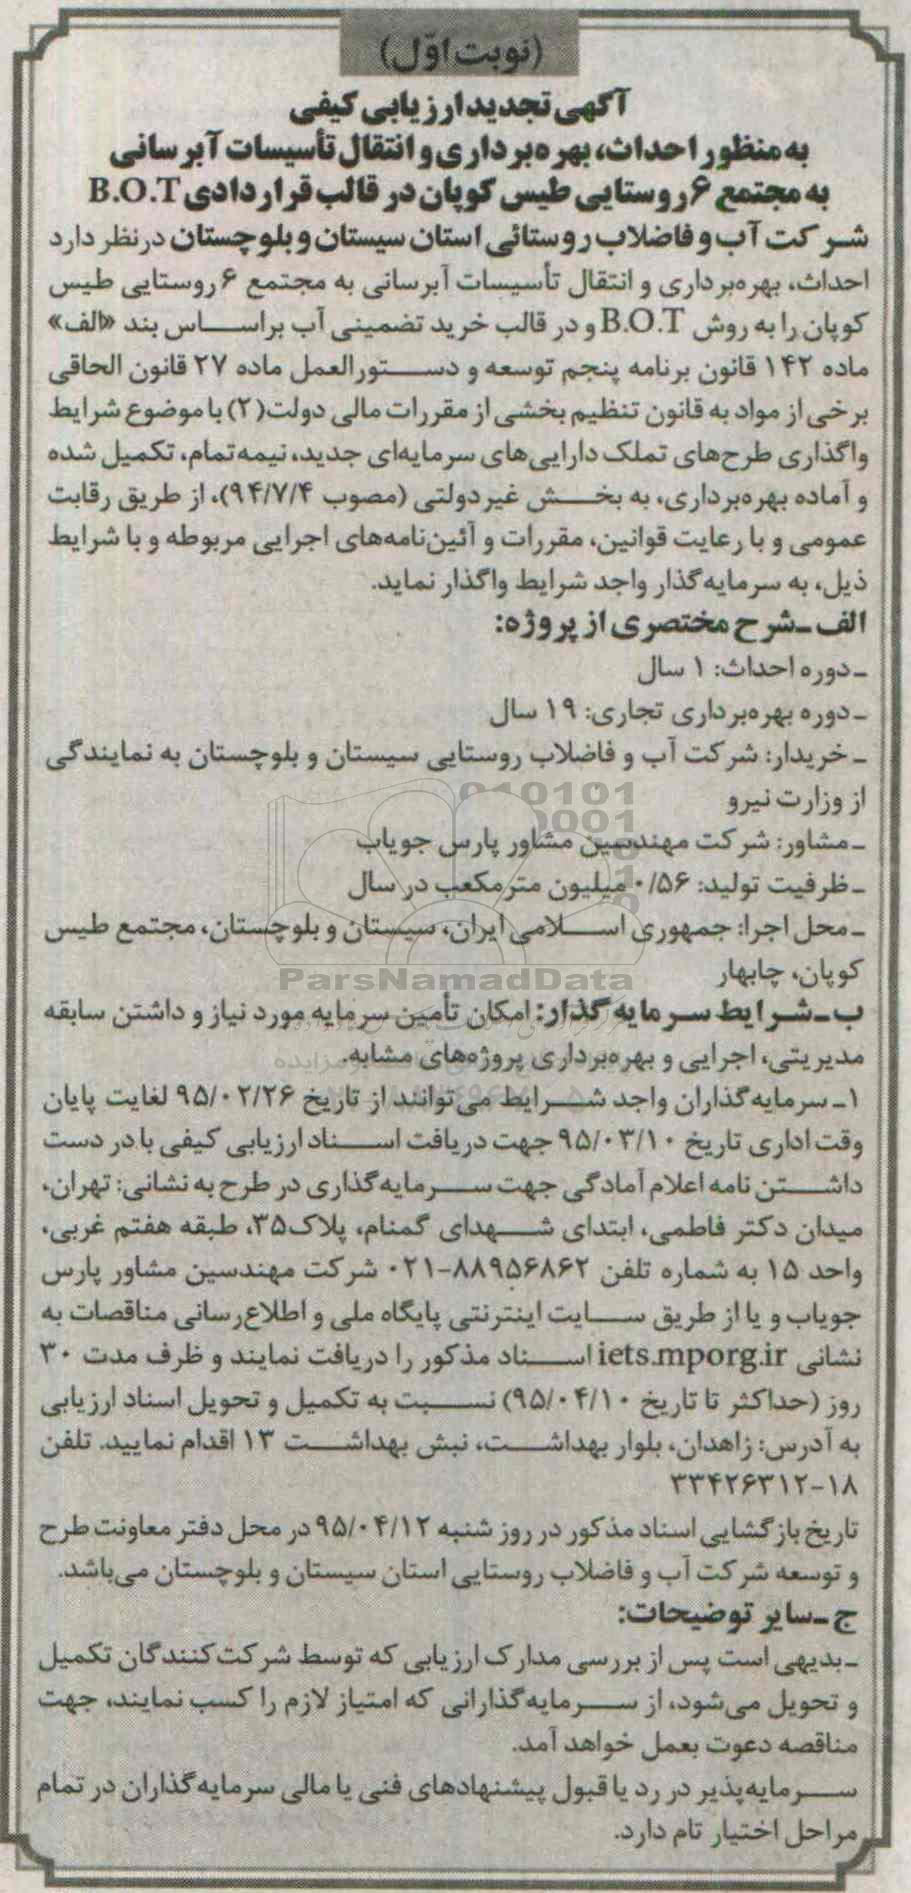 (نوبت اوّل)
آگهی تجدید ارزیابی کیفی
به منظور احداث، بهره‌برداری و انتقال تأسیسات آبرسانی
به مجتمع ۶ روستایی طیس کوپان در قالب قراردادی B.O.T
شرکت آب و فاضلاب روستائی استان سیستان و بلوچستان در نظر دارد
احداث، بهره‌برداری و انتقال تأسیسات آبرسانی به مجتمع ۶ روستایی طیس
کوپان را به روش B.O.T و در قالب خرید تضمینی آب براساس بند «الف»
ماده ۱۴۲ قانون برنامه پنجم توسعه و دستورالعمل ماده ۲۷ قانون الحاقی
برخی از مواد به قانون تنظیم بخشی از مقررات مالی دولت(۲) با موضوع شرایط
واگذاری طرح‌های تملک دارایی‌های سرمایه‌ای جدید، نیمه‌تمام، تکمیل شده
و آماده بهره‌برداری، به بخش غیردولتی (مصوب ۹۴/۷/۴)، از طریق رقابت
عمومی و با رعایت قوانین، مقررات و آئین‌نامه‌های اجرایی مربوطه و با شرایط
ذیل، به سرمایه‌گذار واجد شرایط واگذار نماید.
الف ـ شرح مختصری از پروژه:
ـ دوره احداث: ۱ سال
ـ دوره بهره‌برداری تجاری: ۱۹ سال
ـ خریدار: شرکت آب و فاضلاب روستایی سیستان و بلوچستان به نمایندگی
از وزارت نیرو
ـ مشاور: شرکت مهندسین مشاور پارس جویاب
ـ ظرفیت تولید: ۰/۵۶ میلیون مترمکعب در سال
ـ محل اجرا: جمهوری اسلامی ایران، سیستان و بلوچستان، مجتمع طیس
کوپان، چابهار
ParsNamadData
ب ـ شرایط سرمایه گذار: امکان تأمین سرمایه مورد نیاز و داشتن سابقه
مدیریتی، اجرایی و بهره‌برداری پروژه‌های مشابه.
۱ـ سرمایه‌گذاران واجد شرایط می‌توانند از تاریخ ۹۵/۰۲/۲۶ لغایت پایان
وقت اداری تاریخ ۹۵/۰۳/۱۰ جهت دریافت اسناد ارزیابی کیفی با در دست
داشتن نامه اعلام آمادگی جهت سرمایه‌گذاری در طرح به نشانی: تهران،
میدان دکتر فاطمی، ابتدای شهدای گمنام، پلاک ۳۵، طبقه هفتم غربی،
واحد ۱۵ به شماره تلفن ۸۸۹۵۶۸۶۲-۰۲۱ شرکت مهندسین مشاور پارس
جویاب و یا از طریق سایت اینترنتی پایگاه ملی و اطلاع‌رسانی مناقصات به
نشانی iets.mporg.ir اسناد مذکور را دریافت نمایند و ظرف مدت ۳۰
روز (حداکثر تا تاریخ ۹۵/۰۴/۱۰) نسبت به تکمیل و تحویل اسناد ارزیابی
به آدرس: زاهدان، بلوار بهداشت، نبش بهداشت ۱۳ اقدام نمایید. تلفن
۳۳۴۲۶۳۱۲-۱۸
تاریخ بازگشایی اسناد مذکور در روز شنبه ۹۵/۰۴/۱۲ در محل دفتر معاونت طرح
و توسعه شرکت آب و فاضلاب روستایی استان سیستان و بلوچستان می‌باشد.
ج ـ سایر توضیحات:
ـ بدیهی است پس از بررسی مدارک ارزیابی که توسط شرکت‌کنندگان تکمیل
و تحویل می‌شود، از سرمایه‌گذارانی که امتیاز لازم را کسب نمایند، جهت
مناقصه دعوت بعمل خواهد آمد.
سرمایه‌پذیر در رد یا قبول پیشنهادهای فنی یا مالی سرمایه‌گذاران در تمام
مراحل اختیار تام دارد.